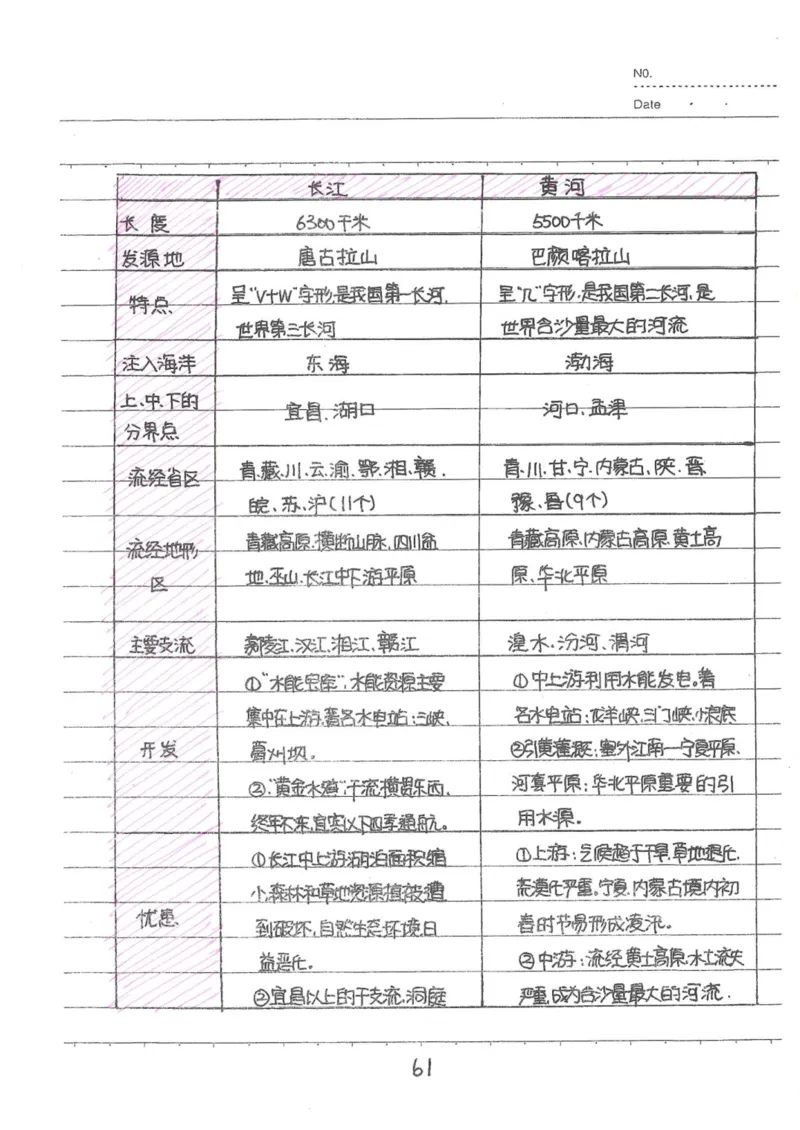 NO.
Date
长江 黄河
长度 6300千米 5500千米
发源地 唐古拉山 巴颜喀拉山
特点 呈“V+W”字形,是我国第一长河, 呈“几”字形,是我国第二长河,是
世界第三长河 世界含沙量最大的河流
注入海洋 东海 渤海
上、中、下的 宜昌、湖口 河口、孟津
分界点
流经省区 青、藏、川、云、渝、鄂、湘、赣、 青、川、甘、宁、内蒙古、陕、晋
皖、苏、沪(11个) 豫、鲁(9个)
流经地形 青藏高原、横断山脉、四川盆 青藏高原、内蒙古高原、黄土高
区 地、巫山、长江中下游平原 原、华北平原
主要支流 嘉陵江、汉江、湘江、赣江 湟水、汾河、渭河
①“水能宝库”:水能资源主要 ①中上游利用水能发电。著
集中在上游,著名水电站:三峡、 名水电站:龙羊峡、三门峡、小浪底
开发 葛洲坝。 ②引黄灌溉:塞外江南—宁夏平原、
②“黄金水道”:干流横贯东西, 河套平原;华北平原重要的引
终年不冻,宜宾以下四季通航。 用水源。
①长江中上游湖泊面积缩 ①上游:气候趋于干旱,草地退化,
小,森林和草地资源植被遭 荒漠化严重。宁夏、内蒙古境内初
忧患 到破坏,自然生态环境日 春时节易形成凌汛。
益恶化。 ②中游:流经黄土高原,水土流失
②宜昌以上的干支流,洞庭 严重,成为含沙量最大的河流.
61